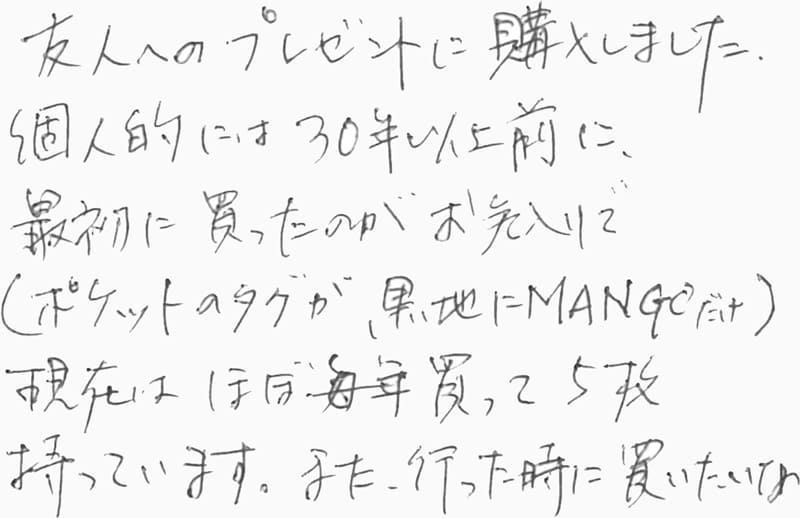 友人へのプレゼントに購入しました.
個人的には30年以上前に、
最初に買ったのがお気入りで
(ポケットのタグが、黒地にMANGOだけ)
現在はほぼ毎年買って5枚
持っています。また、行った時に買いたいな